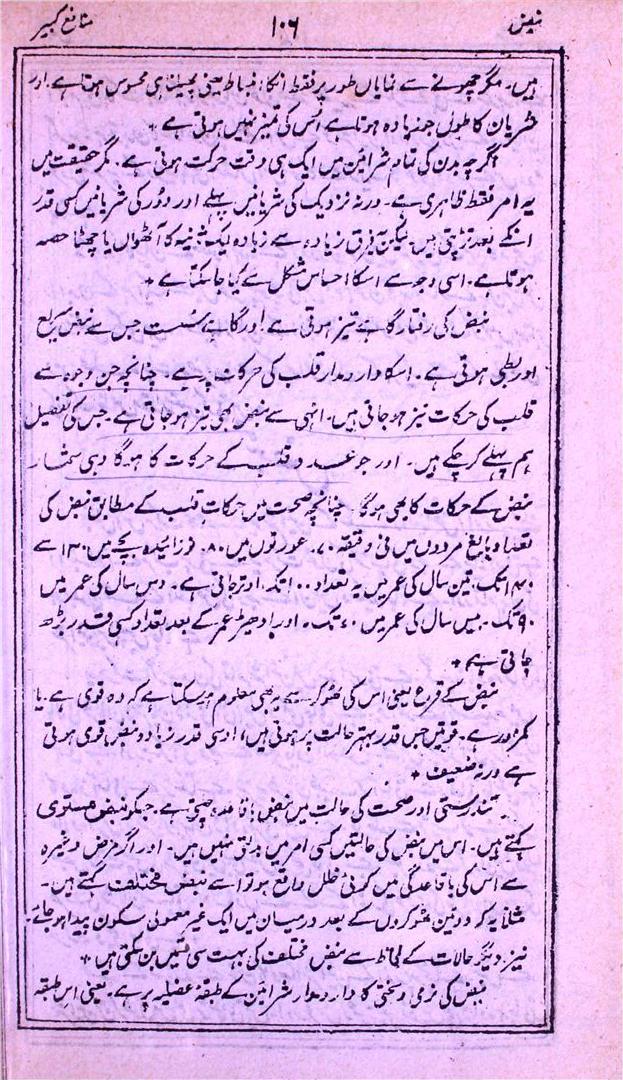 نبض ۱۰۶ منافع کبیر
ہیں۔ مگر چھونے سے نمایاں طور پر فقط انکا انبساط یعنی پھیلنا ہی محسوس ہوتا ہے۔ اور
شریان کا طول جو زیادہ ہوتا ہے اُس کی تمیز نہیں ہوتی ہے ۔
اگرچہ بدن کی تمام شرائین میں ایک ہی وقت حرکت ہوتی ہے۔ مگر حقیقت میں
یہ امر فقط ظاہری ہے۔ ورنہ نزدیک کی شریانیں پہلے اور دُور کی شریانیں کسی قدر
انکے بعد تڑپتی ہیں۔ لیکن یہ فرق زیادہ سے زیادہ ایک ثنیہ کا آٹھواں یا چھٹا حصہ
ہوتا ہے۔ اسی وجہ سے اسکا احساس مشکل سے کیا جا سکتا ہے ۔
نبض کی رفتار گاہے تیز ہوتی ہے اور گاہے سُست جس سے نبض سریع
اور بطی ہوتی ہے۔ اسکا دار و مدار قلب کی حرکات پر ہے۔ چنانچہ جن وجوہ سے
قلب کی حرکات تیز ہو جاتی ہیں۔ انہی سے نبض بھی تیز ہو جاتی ہے۔ جس کی تفصیل
ہم پہلے کر چکے ہیں۔ اور جو عدد قلب کے حرکات کا ہوگا وہی شمار
نبض کے حرکات کا بھی ہوگا۔ چنانچہ صحت میں حرکات قلب کے مطابق نبض کی
تعداد بالغ مردوں میں فی دقیقہ ۷۰۔ عورتوں میں ۸۰۔ نوزائیدہ بچے میں ۱۳۰ سے
۱۴۰ تک۔ تین سال کی عمر میں یہ تعداد ۱۰۰ تک اتر جاتی ہے۔ دس سال کی عمر میں
۹۰ تک۔ بیس سال کی عمر میں ۷۰ تک۔ اور ادھیڑ عمر کے بعد تعداد کسی قدر بڑھ
جاتی ہے ۔
نبض کے قرع یعنی اس کی ٹھوکر سے یہ بھی معلوم ہو سکتا ہے کہ وہ قوی ہے یا
کمزور ہے۔ قوتیں جس قدر بہتر حالت پر ہوتی ہیں، اسی قدر زیادہ نبض قوی ہوتی
ہے ورنہ ضعیف ۔
تندرستی اور صحت کی حالت میں نبض باقاعدہ چلتی ہے۔ جسکو نبض مستوی
کہتے ہیں۔ اس میں نبض کی حالتیں کسی امر میں بدلتی نہیں ہیں۔ اور اگر مرض وغیرہ
سے اس کی باقاعدگی میں کوئی خلل واقع ہو تو اسے نبض مختلف کہتے ہیں۔
مثلاً یہ کہ دو تین ٹھوکروں کے بعد درمیان میں ایک غیر معمولی سکون پیدا ہو جائے۔
نیز دیگر حالات کے لحاظ سے نبض مختلف کی بہت سی قسمیں بن سکتی ہیں ۔
نبض کی نرمی و سختی کا دار و مدار شرائین کے طبقہ عضلیہ پر ہے۔ یعنی اس طبقہ